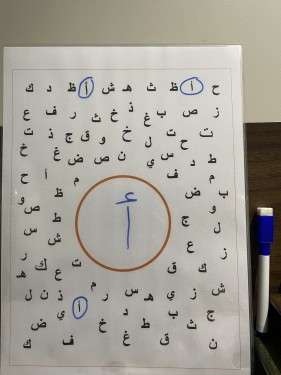 ح أ ظ ث هـ ش أ ظ د ك
ز ص ب غ ذ خ ث ر ف ع
ت ح ت ل خ و ق ج ذ ت
ط د س ي ن ص ض غ خ
م ف م أ ح
ب ض أ ظ و
و ج ط ص
ل ع ش س
ز ك ق ت ع ك ر هـ
ش ز ي هـ س ر م ذ ن ل
ج ب ط د خ أ ي ض
ن ث ق غ ف ك